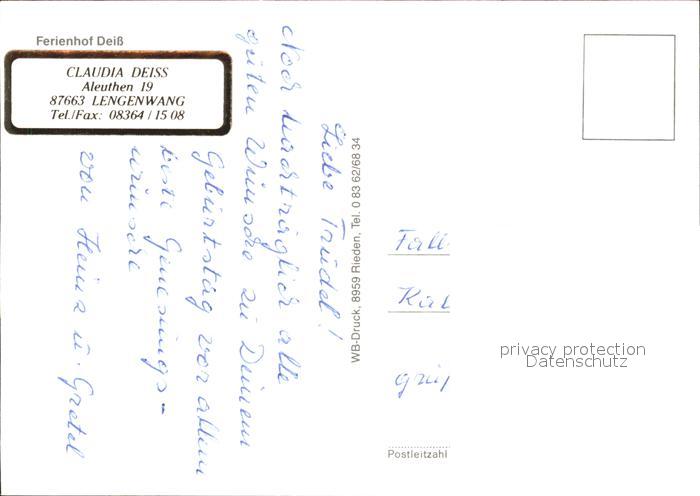 Ferienhof Deiß
CLAUDIA DEISS
Aleuthen 19
87663 LENGENWANG
Tel./Fax: 08364 / 15 08
Liebe Trudel!
Noch nachträglich alle
guten Wünsche zu Deinem
Geburtstag vor allem
beste Genesungs-
wünsche
von Heinz u. Gretel
WB-Druck, 8959 Rieden, Tel. 0 83 62/68 34
Fall
privacy protection
Datenschutz
Postleitzahl